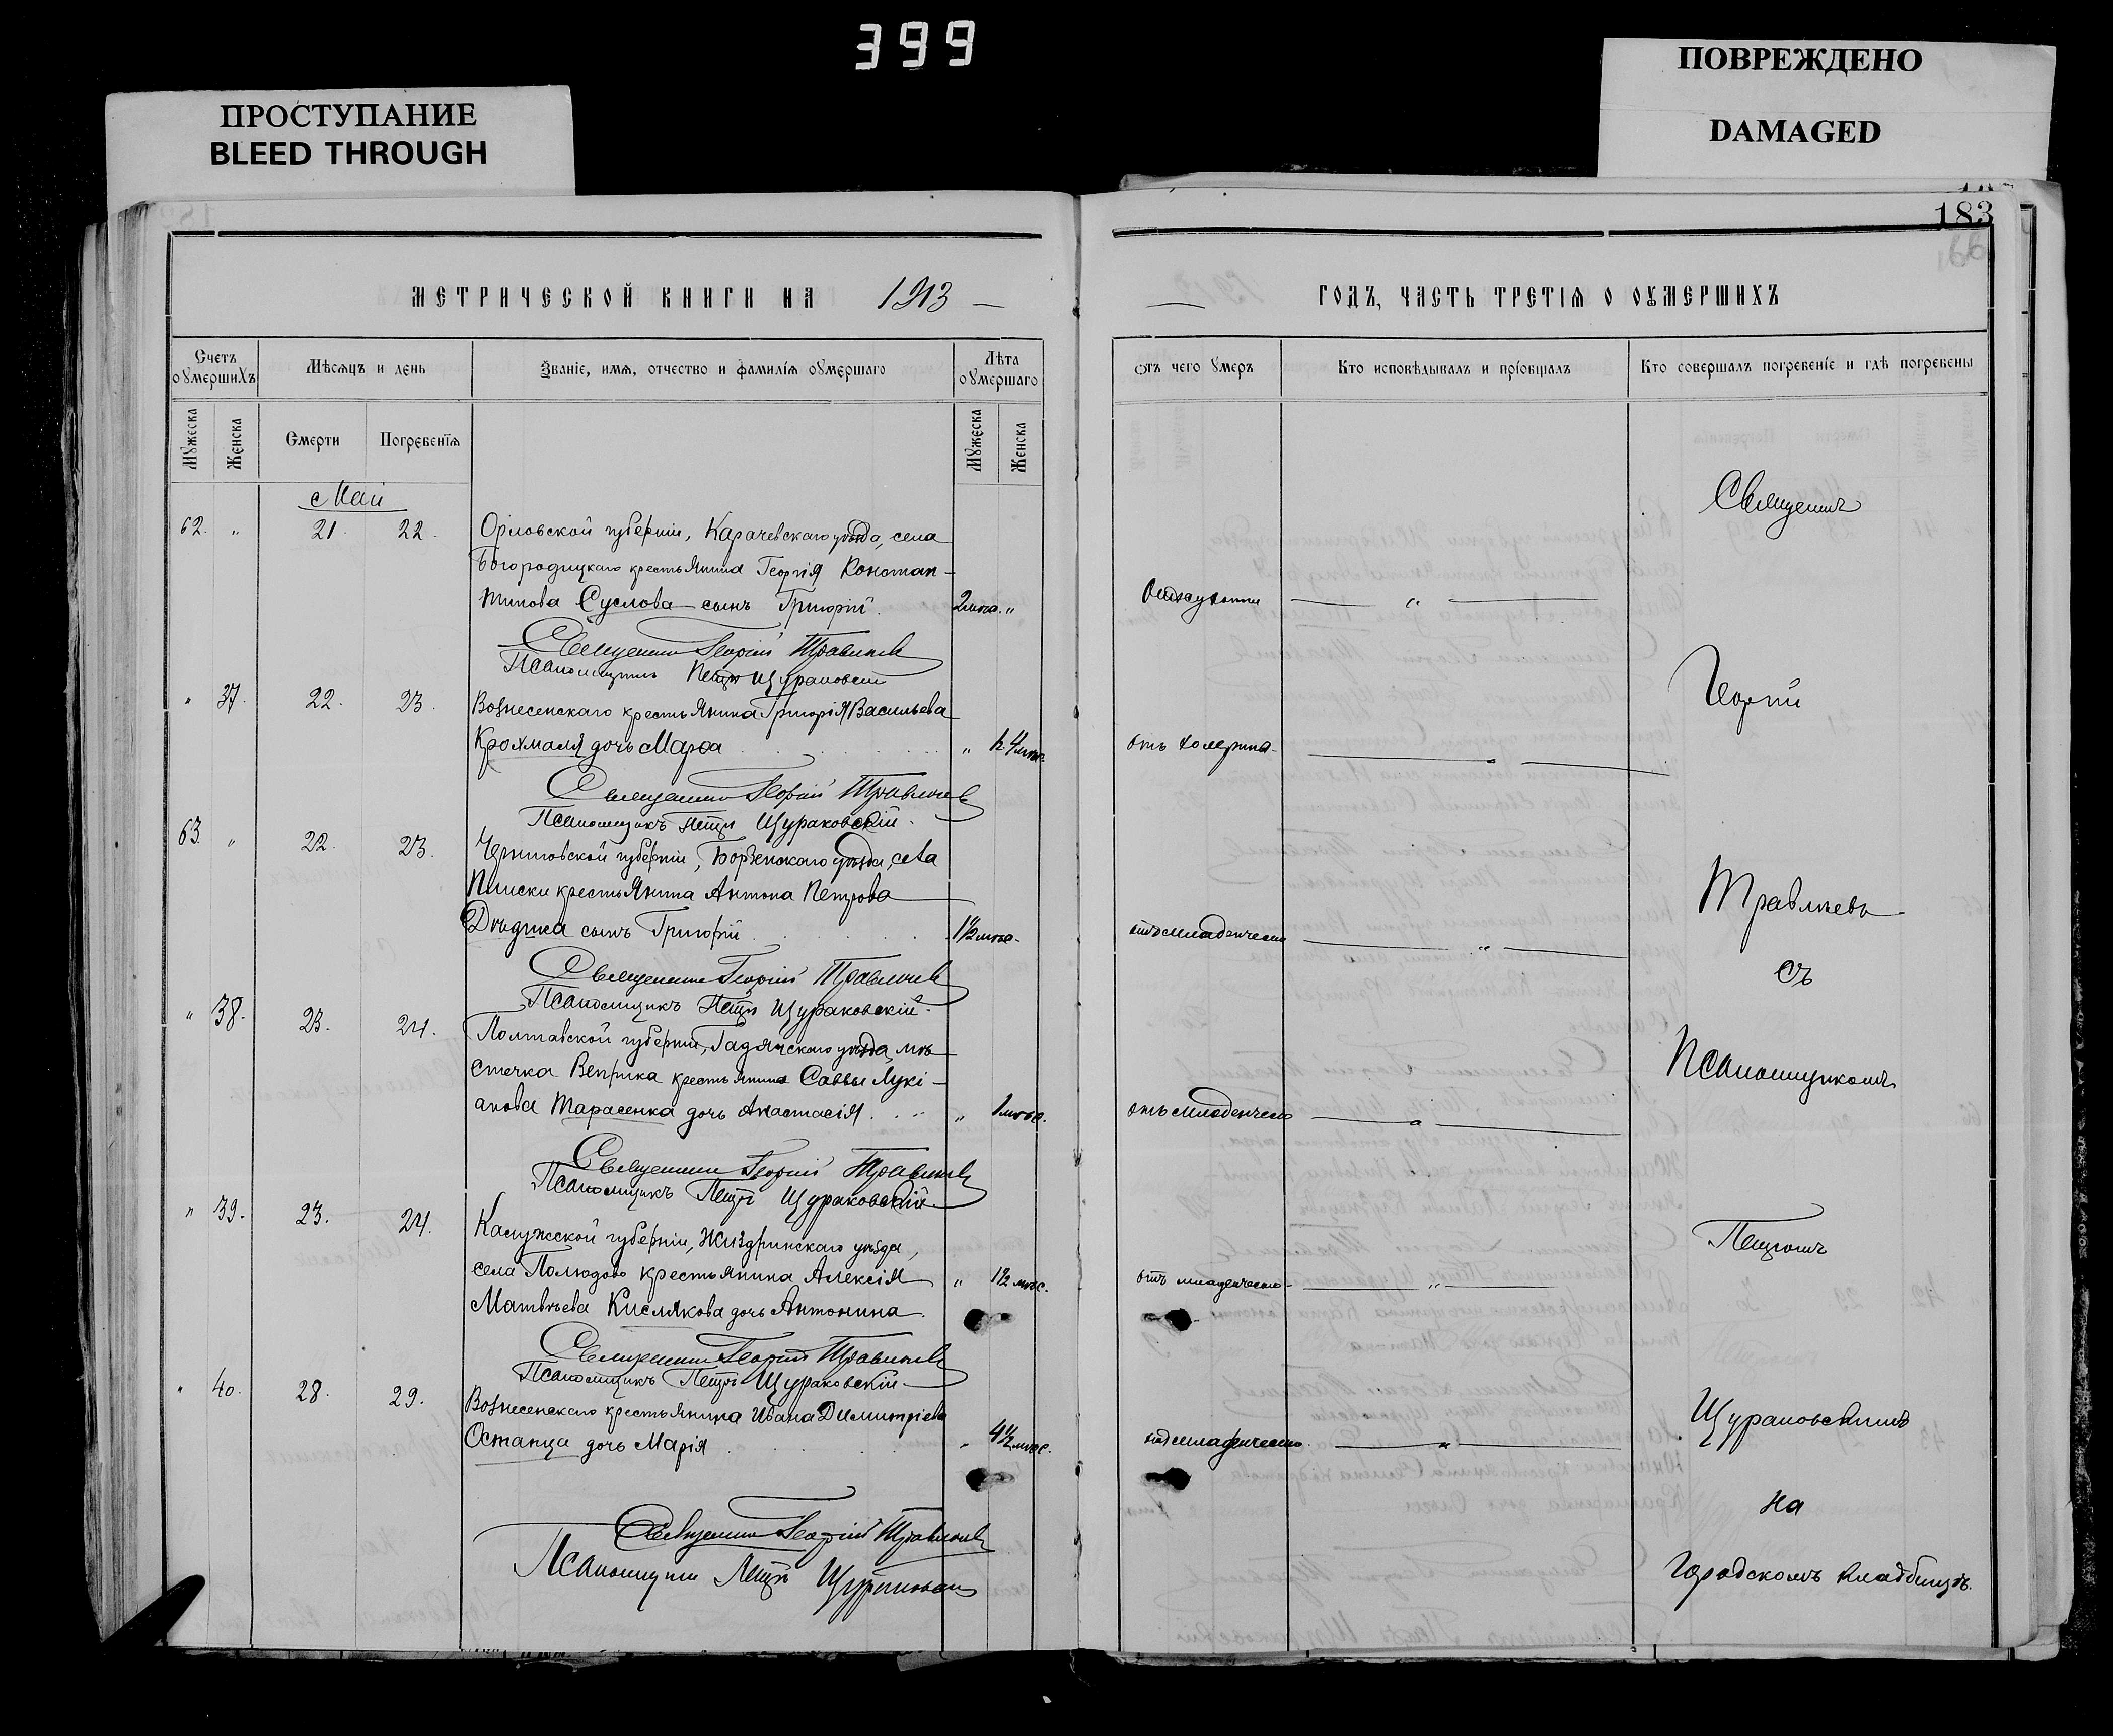 399
ПРОСТУПАНИЕ
BLEED THROUGH
ПОВРЕЖДЕНО
DAMAGED
183
МЕТРИЧЕСКОЙ КНИГИ НА 1913
ГОДЪ, ЧАСТЬ ТРЕТІЯ О ОУМЕРШИХЪ
Счетъ оумершихъ
Мѣсяцъ и день
Званіе, имя, отчество и фамилія оумершаго
Лѣта оумершаго
Отъ чего умеръ
Кто исповѣдывалъ и пріобщалъ
Кто совершалъ погребеніе и гдѣ погребены
Мужеска
Женска
Смерти
Погребенія
Мужеска
Женска
Май
62. " 21. 22. Орловской губерніи, Карачевскаго уѣзда, села
Богородицкаго крестьянина Георгія Констан-
тинова Суслова сынъ Григорій. 2 мѣс. "
Священникъ Георгій Травлѣевъ
Псаломщикъ Петръ Щураковскій
" 37. 22. 23. Вознесенскаго крестьянина Григорія Васильева
Крохмаля дочь Марфа " 4 мѣс. отъ холерины
Священникъ Георгій Травлѣевъ
Псаломщикъ Петръ Щураковскій.
63. " 22. 23. Черниговской губерніи, Борзенскаго уѣзда, села
крестьянина Антона Петрова
Дѣдика сынъ Григорій 1½ мѣс. отъ младенческ
Священникъ Георгій Травлѣевъ
Псаломщикъ Петръ Щураковскій.
" 38. 23. 24. Полтавской губерніи, Гадячскаго уѣзда, мѣ-
стечка Веприка крестьянина Саввы Лукі-
анова Тарасенка дочь Анастасія " 1 мѣс. отъ младенческо
Священникъ Георгій Травлѣевъ
Псаломщикъ Петръ Щураковскій.
" 39. 23. 24. Калужской губерніи, Жиздринскаго уѣзда,
села Полюдово крестьянина Алексія " 1½ мѣс. отъ младенческо
Матвѣева Кислякова дочь Антонина.
Священникъ Георгій Травлѣевъ
Псаломщикъ Петръ Щураковскій
" 40. 28. 29. Вознесенскаго крестьянина Ивана Димитріева
Останца дочь Марія " 4½ мѣс. отъ младенческо
Священникъ Георгій Травлѣевъ
Псаломщикъ Петръ Щураковскій
Священникъ
Георгій
Травлѣевъ
съ
Псаломщикомъ
Петромъ
Щураковскимъ
на
городскомъ кладбищѣ.